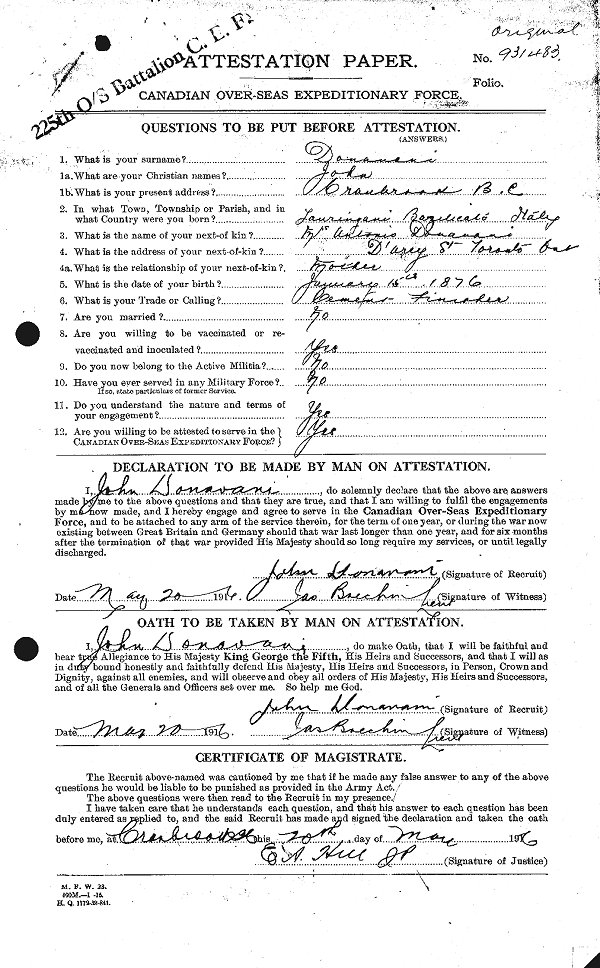 Original
225th O/S Battalion C. E. F.
ATTESTATION PAPER.
No. 931483
Folio.
CANADIAN OVER-SEAS EXPEDITIONARY FORCE.
QUESTIONS TO BE PUT BEFORE ATTESTATION.
(ANSWERS.)
1. What is your surname? Donavani
1a. What are your Christian names? John
1b. What is your present address? Cranbrook B.C
2. In what Town, Township or Parish, and in
what Country were you born? Italy
3. What is the name of your next-of kin? Antonio Donavani
4. What is the address of your next-of-kin? D'arcy St Toronto Ont
4a. What is the relationship of your next-of-kin?
5. What is the date of your birth? January 15th 1876
6. What is your Trade or Calling? Cement Finisher
7. Are you married? No
8. Are you willing to be vaccinated or re-
vaccinated and inoculated? Yes
9. Do you now belong to the Active Militia? No
10. Have you ever served in any Military Force? No
If so, state particulars of former Service.
11. Do you understand the nature and terms of
your engagement? Yes
12. Are you willing to be attested to serve in the
CANADIAN OVER-SEAS EXPEDITIONARY FORCE? Yes
DECLARATION TO BE MADE BY MAN ON ATTESTATION.
I, John Donavani, do solemnly declare that the above are answers
made by me to the above questions and that they are true, and that I am willing to fulfil the engagements
by me now made, and I hereby engage and agree to serve in the Canadian Over-Seas Expeditionary
Force, and to be attached to any arm of the service therein, for the term of one year, or during the war now
existing between Great Britain and Germany should that war last longer than one year, and for six months
after the termination of that war provided His Majesty should so long require my services, or until legally
discharged.
John Donavani (Signature of Recruit)
Date May 20 1916. Jas Brechin Lieut (Signature of Witness)
OATH TO BE TAKEN BY MAN ON ATTESTATION.
I, John Donavani, do make Oath, that I will be faithful and
bear true Allegiance to His Majesty King George the Fifth, His Heirs and Successors, and that I will as
in duty bound honestly and faithfully defend His Majesty, His Heirs and Successors, in Person, Crown and
Dignity, against all enemies, and will observe and obey all orders of His Majesty, His Heirs and Successors,
and of all the Generals and Officers set over me. So help me God.
John Donavani (Signature of Recruit)
Date May 20 1916. Jas Brechin Lieut (Signature of Witness)
CERTIFICATE OF MAGISTRATE.
The Recruit above-named was cautioned by me that if he made any false answer to any of the above
questions he would be liable to be punished as provided in the Army Act.
The above questions were then read to the Recruit in my presence.
I have taken care that he understands each question, and that his answer to each question has been
duly entered as replied to, and the said Recruit has made and signed the declaration and taken the oath
before me, at Cranbrook this 20th day of May 1916
E A Hill JP (Signature of Justice)
M. F. W. 23.
H. Q. 1772-39-841.